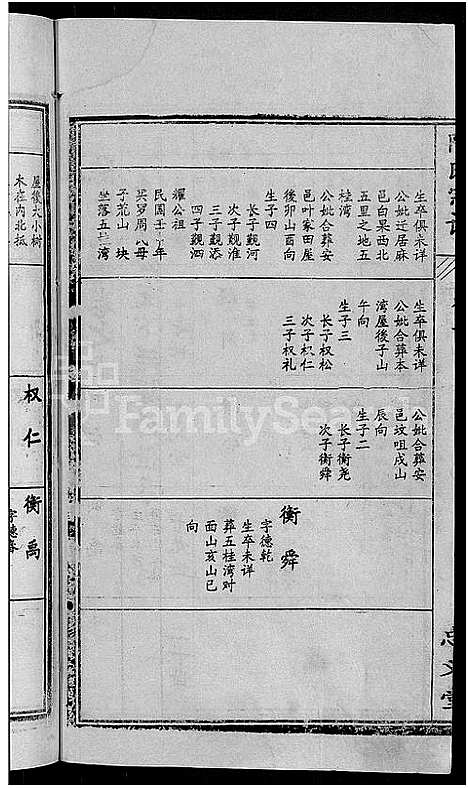 生卒俱未详
公妣迁居麻
邑白果西北
五里之地五
桂湾
公妣合葬安
邑叶家田屋
後卯山酉向
生子四
长子觀河
次子觀淮
三子觀添
四子觀泗
耀公祖
民國壬
买罗周氏母
子荒山 块
坐落五
湾
屋後大小樹
木在内北抵
生卒俱未详
公妣合葬本
湾屋後子山
午向
生子三
长子权松
次子权仁
三子权礼
公妣合葬安
邑坟咀戌山
辰向
生子二
长子衡尧
次子衡舜
权仁
衡舜
字德乾
生卒未详
葬五桂湾对
面山亥山巳
向
衡禹
FamilySearch